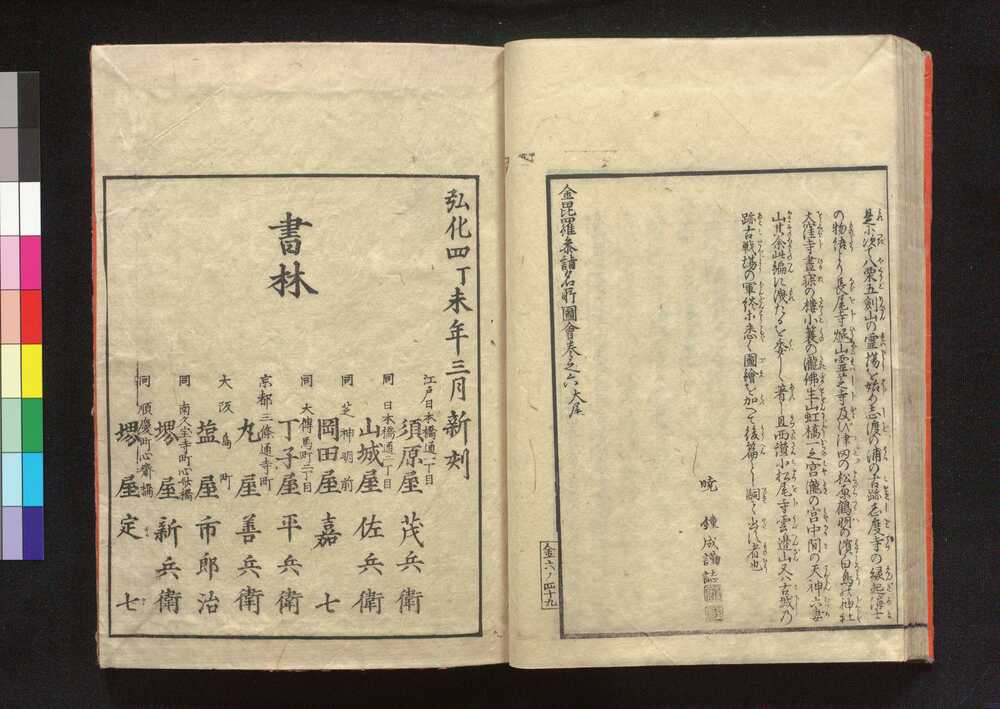 是に次で八栗五剣山の霊場を始め志渡の浦の古跡志度寺の縁起海士
の物語より長尾寺
及び津田の松原鶴羽の濱白鳥の神社
大窪寺
一之宮瀧の宮中間の天神六妻
山其余此編に洩たるを委しく著し且西讃小松尾寺雲邊山又八古城乃
跡古戦場の軍終ホ悉く圖繪を加へて後篇に嗣て出に者也
暁 鐘成謹誌
金毘羅参詣名所圖會巻之六大尾
金六ノ四十九
弘化四丁未年三月新刻
書林
江戸日本橋通一丁目
須原屋茂兵衛
同 日本橋通二丁目
山城屋佐兵衛
同 芝神明前
岡田屋嘉七
同 大傳馬町二丁目
丁子屋平兵衛
京都三條通寺町
丸屋善兵衛
大阪島町
塩屋市郎治
同 南久宝寺町心斎橋
堺屋新兵衛
同 順慶町心齋橋
堺屋定七